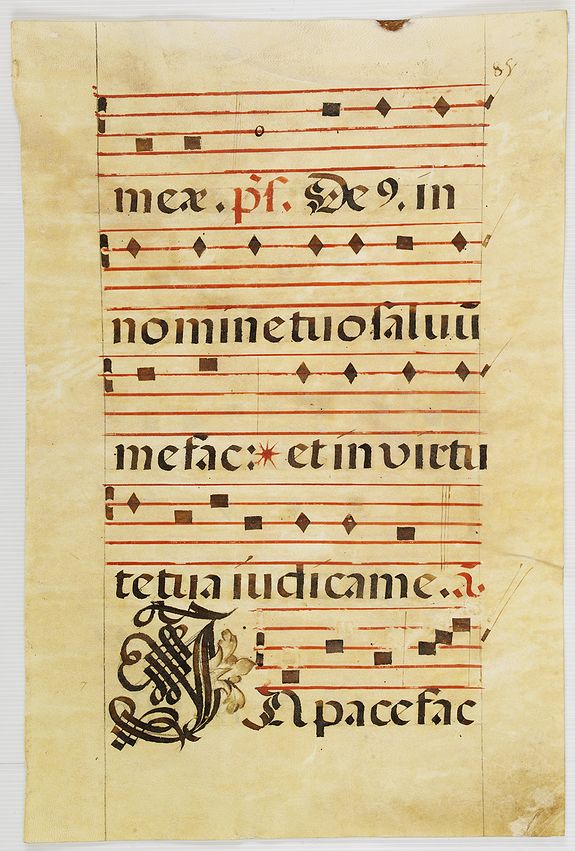 85
meæ. p̃s. De9. in
nomine tuo saluũ
me fac: et in virtu
te tua iudica me. ã.
IN pace fac